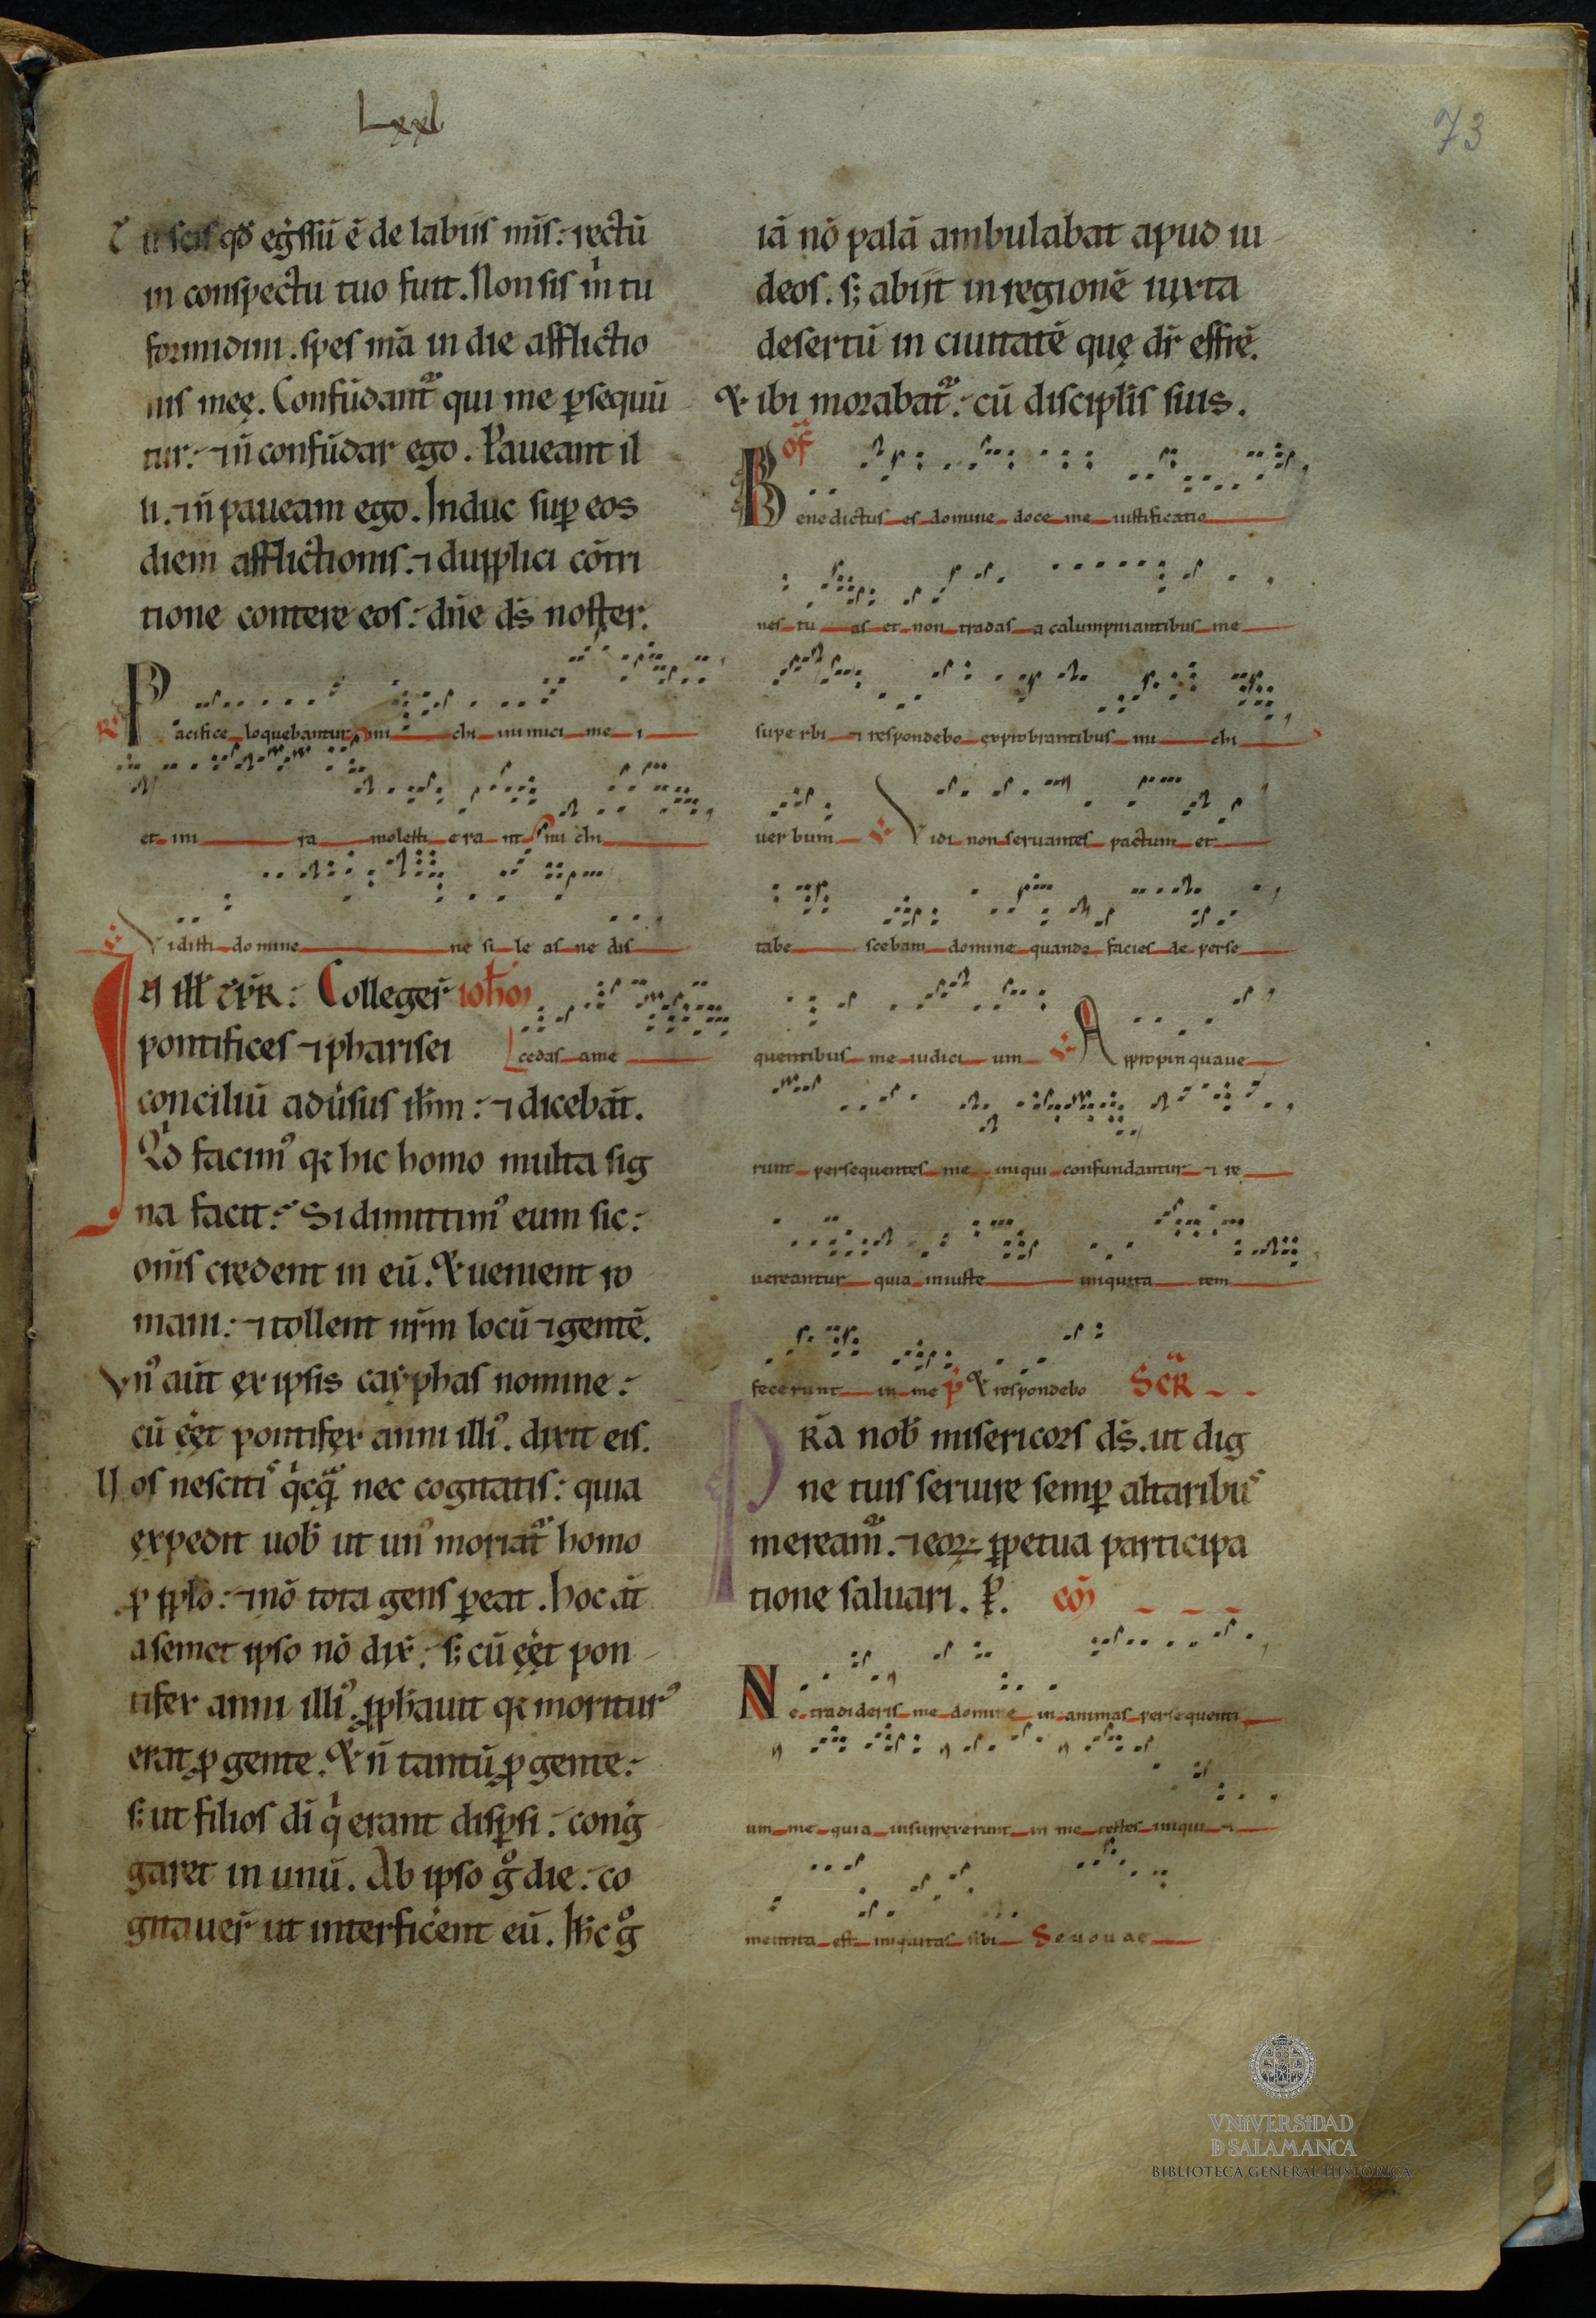 Lxxl
73
Tu scis qđ eg̃ssũ ẽ de labiis mĩs: rectũ
in conspectu tuo fuit. Non sis m̃ tu
formidini. spes mã in die afflictio
nis meę. Confũdant᷑ qui me ꝑsequũ
tur: ⁊ ñ confũdar ego. Paueant il
li. ⁊ ñ paueam ego. Induc suꝑ eos
diem afflictionis. ⁊ dupplici cõtri
tione contere eos: dñe dš noster.
R. Pacifice loquebantur mi chi inimici me i
et in i ra molesti e ra nt mi chi
V. Vidisti domine ne si le as ne dis
cedas a me
IN ill̃ TP̃R: Collegeř ioh̃
pontifices ⁊ pharisei
conciliũ adũsus ih̃m: ⁊ dicebãt.
Qd facim᷒ qr hic homo multa sig
na facit: Si dimittim᷒ eum sic:
om̃s credent in eũ. Et uenient ro
mani: ⁊ tollent nr̃m locũ ⁊ gentẽ.
Vn᷒ aũt ex ipsis cayphas nomine:
cũ eẽt pontifex anni illi᷒. dixit eis.
Uos nescitis q̃cq̃ nec cogitatis: quia
expedit uob̃ ut un᷒ moriat᷑ homo
ꝓ pplo: ⁊ nõ tota gens ꝑeat. hoc aũt
a semet ipso nõ dix̃: s; cũ eẽt pon
tifex anni illi᷒. ꝓph̃auit qr moritur᷒
erat ꝓ gente. Et ñ tantũ ꝓ gente:
s; ut filios dĩ q̃ erant disꝑsi: cong̃
garet in unũ. Ab ipso g̊ die: co
gitaueř ut interfic̃ent eũ. Ih̃c g̊
iã nõ palã ambulabat apud iu
deos. s; abiit in regionẽ iuxta
desertũ in ciuitatẽ quę dr̃ effrẽ.
Et ibi morabat᷑: cũ discipl̃is suis.
Of̃
Benedictus es domine doce me iustificatio
nes tu as et non tradas a calumpniantibus me
supe rbi ⁊ respondebo exprobrantibus mi chi
uer bum V. Vidi non seruantes pactum et
tabe scebam domine quando facies de perse
quentibus me iudici um V. Appropinquaue
runt persequentes me iniqui confundantur ⁊ re
uereantur quia iniuste iniquita tem
fecerunt in me p̃ Et respondebo SCR̃A
PR̃A nob̃ misericors dš. ut dig
ne tuis seruire semꝑ altaribus
meream᷑. ⁊ eoꝝ ꝑpetua participa
tione saluari. ꝑ. cõ
Ne tradideris me domine in animas persequenti
um me quia insurrexerunt in me testes iniqui ⁊
mentita est iniquitas sibi Seuouae
VNIVERSIDAD
D SALAMANCA
BIBLIOTECA GENERAL HISTÓRICA